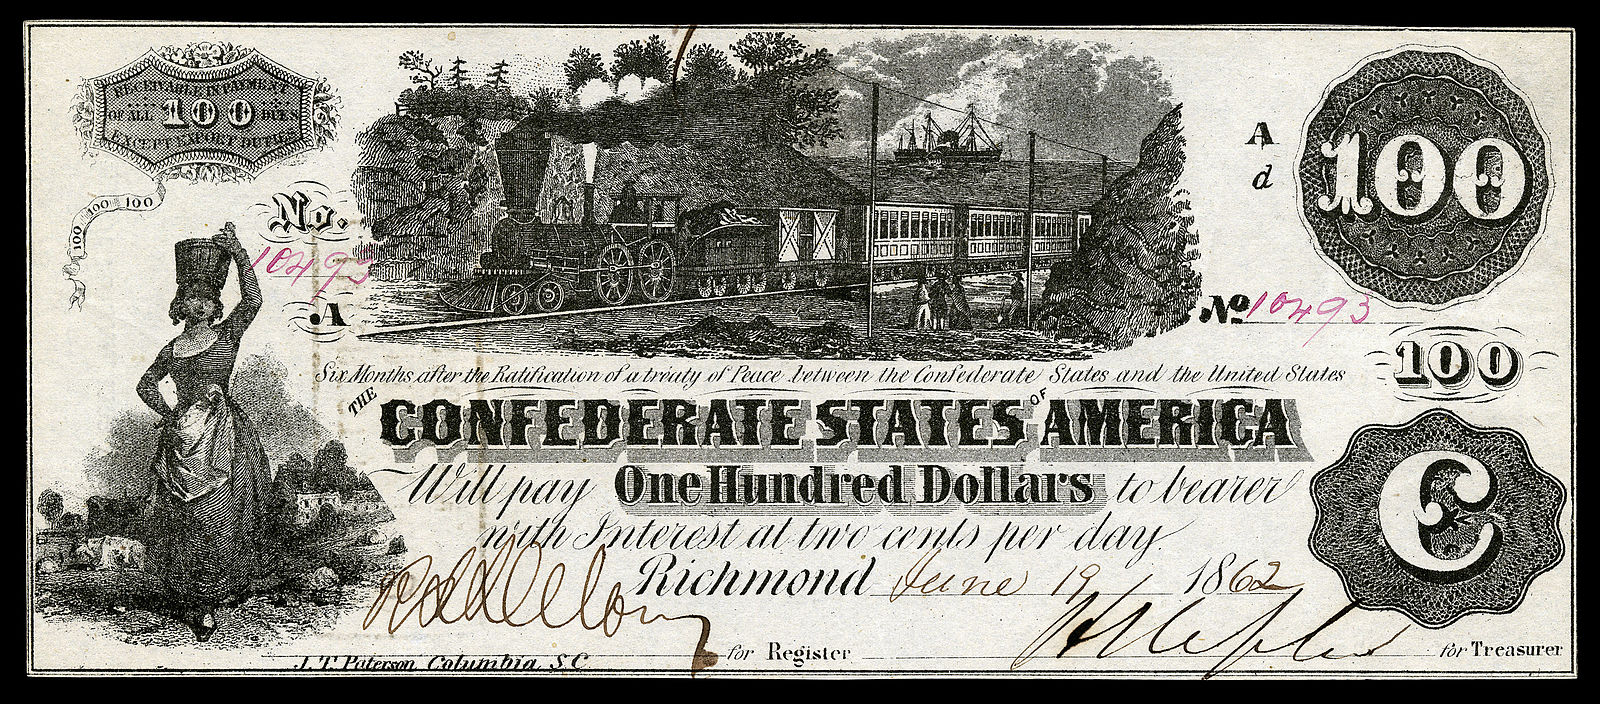 RECEIVABLE IN PAYMENT
OF ALL 100 DUES
EXCEPT EXPORT DUTIES
100 100 100
No.
10493
A
A
d
100
No 10493
100
Six Months after the Ratification of a treaty of Peace between the Confederate States and the United States
THE CONFEDERATE STATES OF AMERICA
Will pay One Hundred Dollars to bearer
with Interest at two cents per day.
Richmond June 19 1862
C
for Register
for Treasurer
J. T. Paterson Columbia, S.C